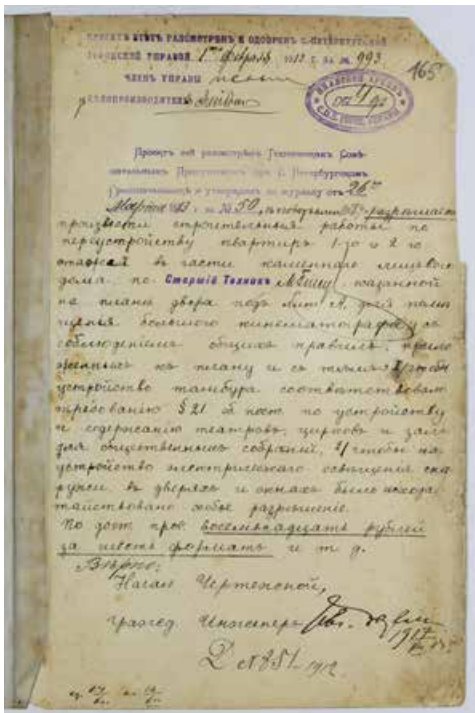 ПРОЕКТЪ ЭТОТЪ РАЗСМОТРѢНЪ И ОДОБРЕНЪ С.-ПЕТЕРБУРГСКОЙ
ГОРОДСКОЙ УПРАВОЙ 1го февраля 1913 Г. ЗА № 993
165
ЧЛЕНЪ УПРАВЫ
ДѢЛОПРОИЗВОДИТЕЛЬ
Проектъ сей разсмотрѣнъ Техническимъ Совѣ-
щательнымъ Присутствіемъ при С. Петербургскомъ
Градоначальствѣ и утвержденъ по журналу отъ 26го
Марта 1913 г. за № 50,
произвести строительныя работы по
переустройству квартиръ 1-го и 2-го
этажей въ части каменнаго лицевого
дома по Старшій Техникъ указанной
на планѣ двора подъ Лит. А. для помѣ-
щенія большого кинематографа, съ
соблюденіемъ общихъ правилъ, прило-
женныхъ къ плану и съ тѣмъ: 1/ чтобы
устройство тамбура соответствовало
требованію § 21 об. пост. по устройству
и содержанію театровъ, цирковъ и залъ
для общественныхъ собраній, 2/ чтобы на
устройство электрическаго освѣщенія сна-
ружи въ дверяхъ и окнахъ было исхода-
тайствовано особое разрѣшеніе.
восемьнадцать рублей
за шесть форматъ и т д.
Вѣрно:
Начал. Чертежной,
гражд. Инженеръ
1917
Д № 851-1912